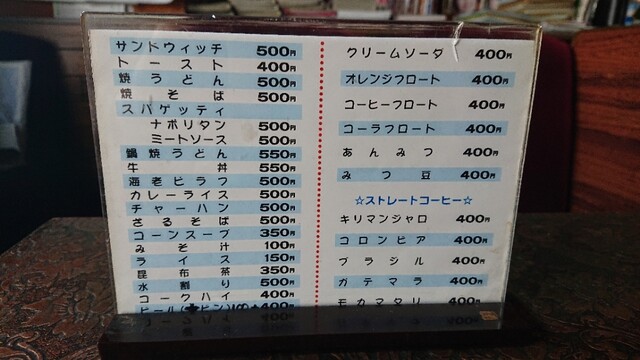 サンドウィッチ 500円
トースト 400円
焼うどん 500円
焼そば 500円
スパゲッティ
ナポリタン 500円
ミートソース 500円
鍋焼うどん 550円
牛丼 550円
海老ピラフ 500円
カレーライス 500円
チャーハン 500円
ざるそば 500円
コーンスープ 350円
みそ汁 100円
ライス 150円
昆布茶 350円
水割り 500円
コークハイ 400円
400円
クリームソーダ 400円
オレンジフロート 400円
コーヒーフロート 400円
コーラフロート 400円
あんみつ 400円
みつ豆 400円
☆ストレートコーヒー☆
キリマンジャロ 400円
コロンビア 400円
ブラジル 400円
ガテマラ 400円
モカマタリ 400円